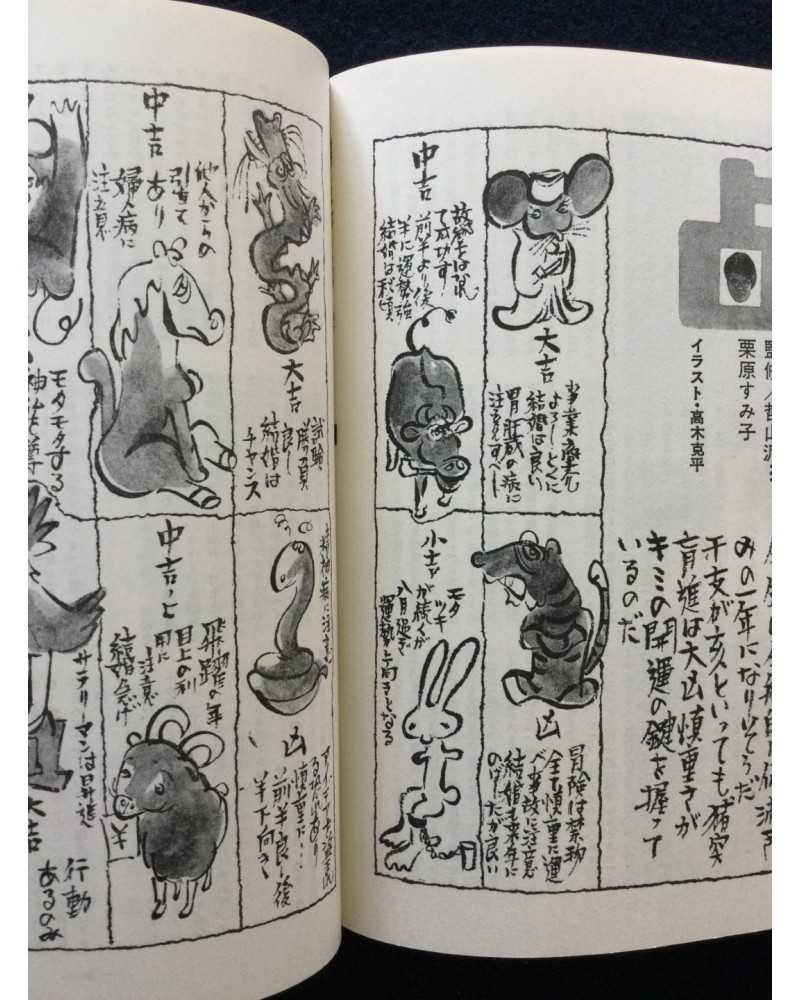 占
監修
栗原すみ子
イラスト・高木克平
みの一年になりそうだ
干支が亥といっても猪突
盲進は大凶慎重さが
キミの開運の鍵を握って
いるのだ
大吉
事業鹿
よろし とくに
結婚は良い
胃肝蔵の病に
注意すべし
凶
冒険は禁物
全て慎重に運
べ事故に注意
結婚も来年に
のばした方が良い
中吉
て成功す!
前半より後
半に運勢強
結婚は秋頃
小吉
モタ
ツキ
が続くが
八月過ぎ
運勢上向きとなる
大吉
試験
勝負
良し
結婚は
チャンス
精神病に注意
凶
慎重に…
前半良し後
半下向き
中吉
他人からの
引立て
あり
婦人病に
注意
中吉ノ上
飛躍の年
目上の利
用に
注意
結婚急げ
モタモタする
サラリーマンは昇進
大吉
行動
あるのみ